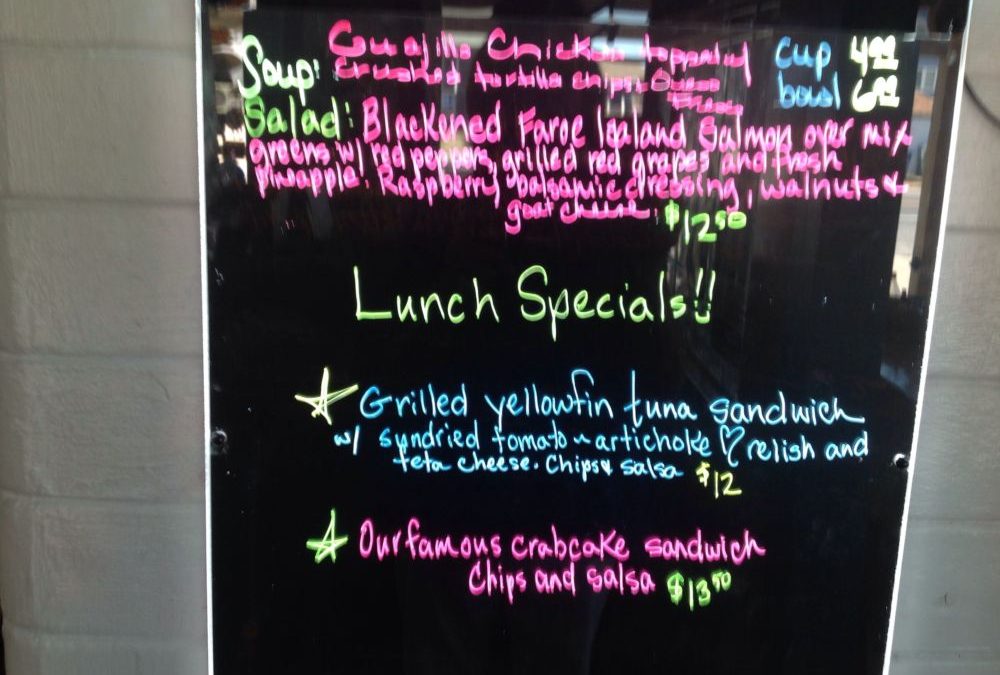 Soup: Guajillo Chicken topped w/ cup 4.99
crushed tortilla chips + Queso bowl 6.99
Fresco
Salad: Blackened Faroe Island Salmon over mix
greens w/ red peppers, grilled red grapes and fresh
pineapple. Raspberry balsamic dressing, walnuts +
goat cheese. $12.50
Lunch Specials!!
☆ Grilled yellowfin tuna sandwich
w/ sundried tomato ~ artichoke ♡ relish and
feta cheese. Chips & salsa $12
☆ Our famous crabcake sandwich
Chips and salsa $13.50